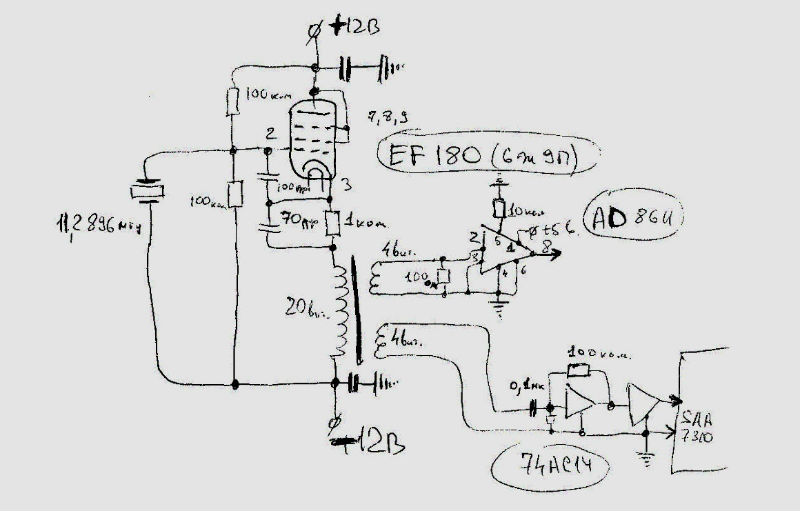 +12В
100ком
7,8,9
2
EF 180 (6ж9п)
3
100пф
100ком
70пф
1ком
11,2896мгц
10ком
AD 8611
5
1
+5 В
2
3
8
4
6
4вит.
100ом
20вит.
4вит.
100ком.
0,1мк
SAA
7310
-12В
74AC14